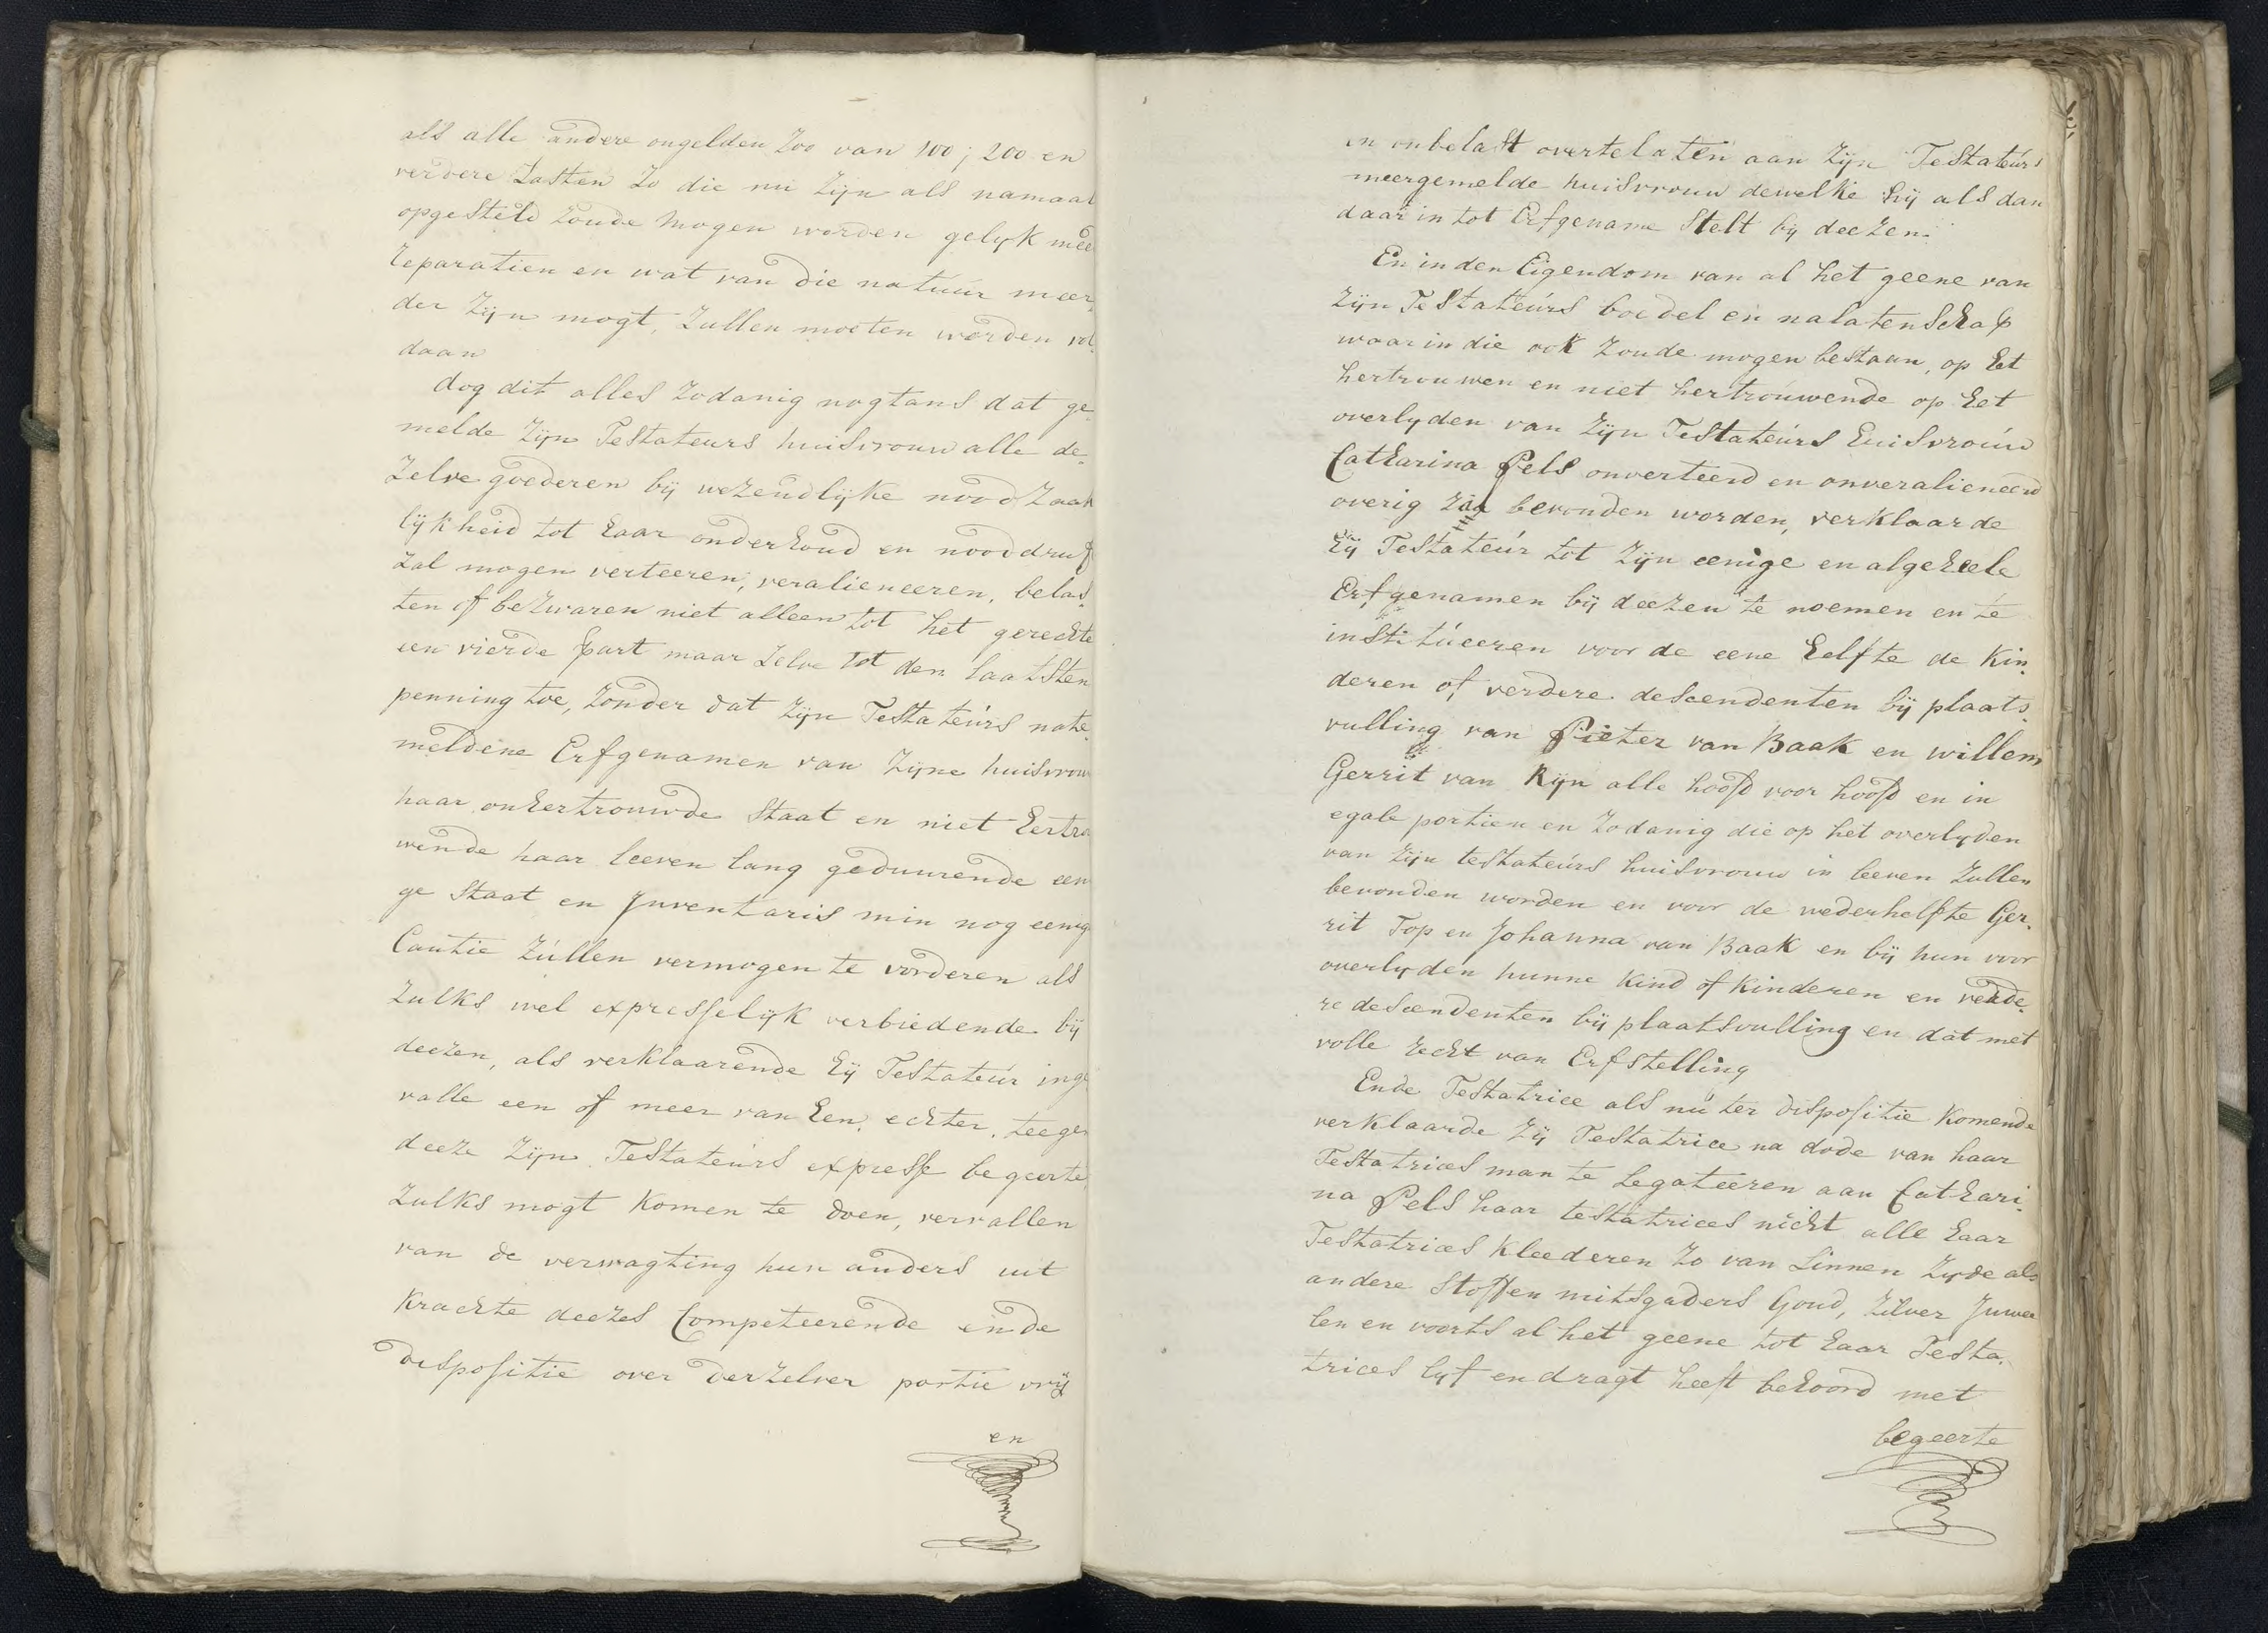 als alle andere ongelden Zoo van 100; 200 en
verdere Lasten Zo die nu Zijn als namaal
opgesteld Zoude mogen worden gelyk mee
Reparatien en wat van die natuur meer
der Zijn mogt, Zullen moeten worden vol
daan
dog dit alles Zodanig nogtans dat ge
melde Zijn Testateurs huisvrouw alle de
Zelve goederen bij wezendlijke noodZaak
lijkheid tot haar onderhoud en nooddruf
Zal mogen verteeren, veralieneeren, belas
ten of beZwaren niet alleen tot het gerechte
een vierde part maar Zelve tot den laatsten
penning toe, Zonder dat Zijn Testateurs nate
meldene Erfgenamen van Zijne huisvrouw
haar onhertrouwde Staat en niet hertro
wende haar leeven lang geduurende een
ge Staat en Inventaris min nog eenig
Cautie Zullen vermogen te vorderen als
Zulks wel expresselijk verbiedende bij
deezen, als verklaarende hij Testateur inge
valle een of meer van hen, echter, teegen
deeze Zijn Testateurs expresse begeerte
Zulks mogt Komen te doen, vervallen
van de verwagting hun anders uit
Krachte deezes Competeerende ende
dispositie over derZelver portie vrij
en
en onbelast overtelaten aan Zijn Testateurs
meergemelde huisvrouw dewelke hij als dan
daar in tot Erfgename Stelt bij deeZen.
En in den Eigendom van al het geene van
Zijn Testateurs boedel en nalatenschap
waar in die ook Zoude mogen bestaan, op het
hertrouwen en niet hertrouwende op het
overlyden van Zijn Testateurs huisvrouw
Catharina Pels onverteerd en onveralieneerd
overig Zal bevonden worden, verklaarde
hij Testateur tot Zijn eenige en algeheele
Erfgenamen bij deezen te noemen en te
institueeren voor de eene helfte de Kin
deren of verdere descendenten bij plaats
vulling van Pieter van Baak en willem
Gerrit van Rijn alle hoofd voor hoofd en in
egale portien en Zodanig die op het overlyden
van Zijn testateurs huisvrouw in leeven Zullen
bevonden worden en voor de wederhelfte Ger
rit Top en Johanna van Baak en bij hun voor
overlyden hunne Kind of Kinderen en verde
re descendenten bij plaatsvulling en dat met
volle recht van Erfstelling
Ende Testatrice als nu ter dispositie Komende
verklaarde Zij Testatrice na dode van haar
Testatrices man te Legateeren aan Cathari
na Pels haar testatrices nicht alle haar
Testatrices Kleederen Zo van Linnen Zyde als
andere Stoffen mitsgaders Goud, Zilver Juwee
len en voorts al het geene tot haar Testa
trices lyf en dragt heeft behoord met
begeerte